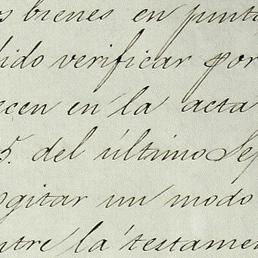 s bienes en junta
ido verificar por
ecen en la acta
5. del último Se
ogitar un modo
ntre la testamen